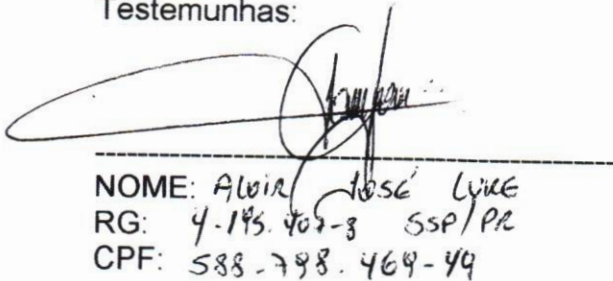 Testemunhas:
NOME: ALVIR JOSÉ LUKE
RG: 4.195.407-3 SSP/PR
CPF: 588.798.469-49